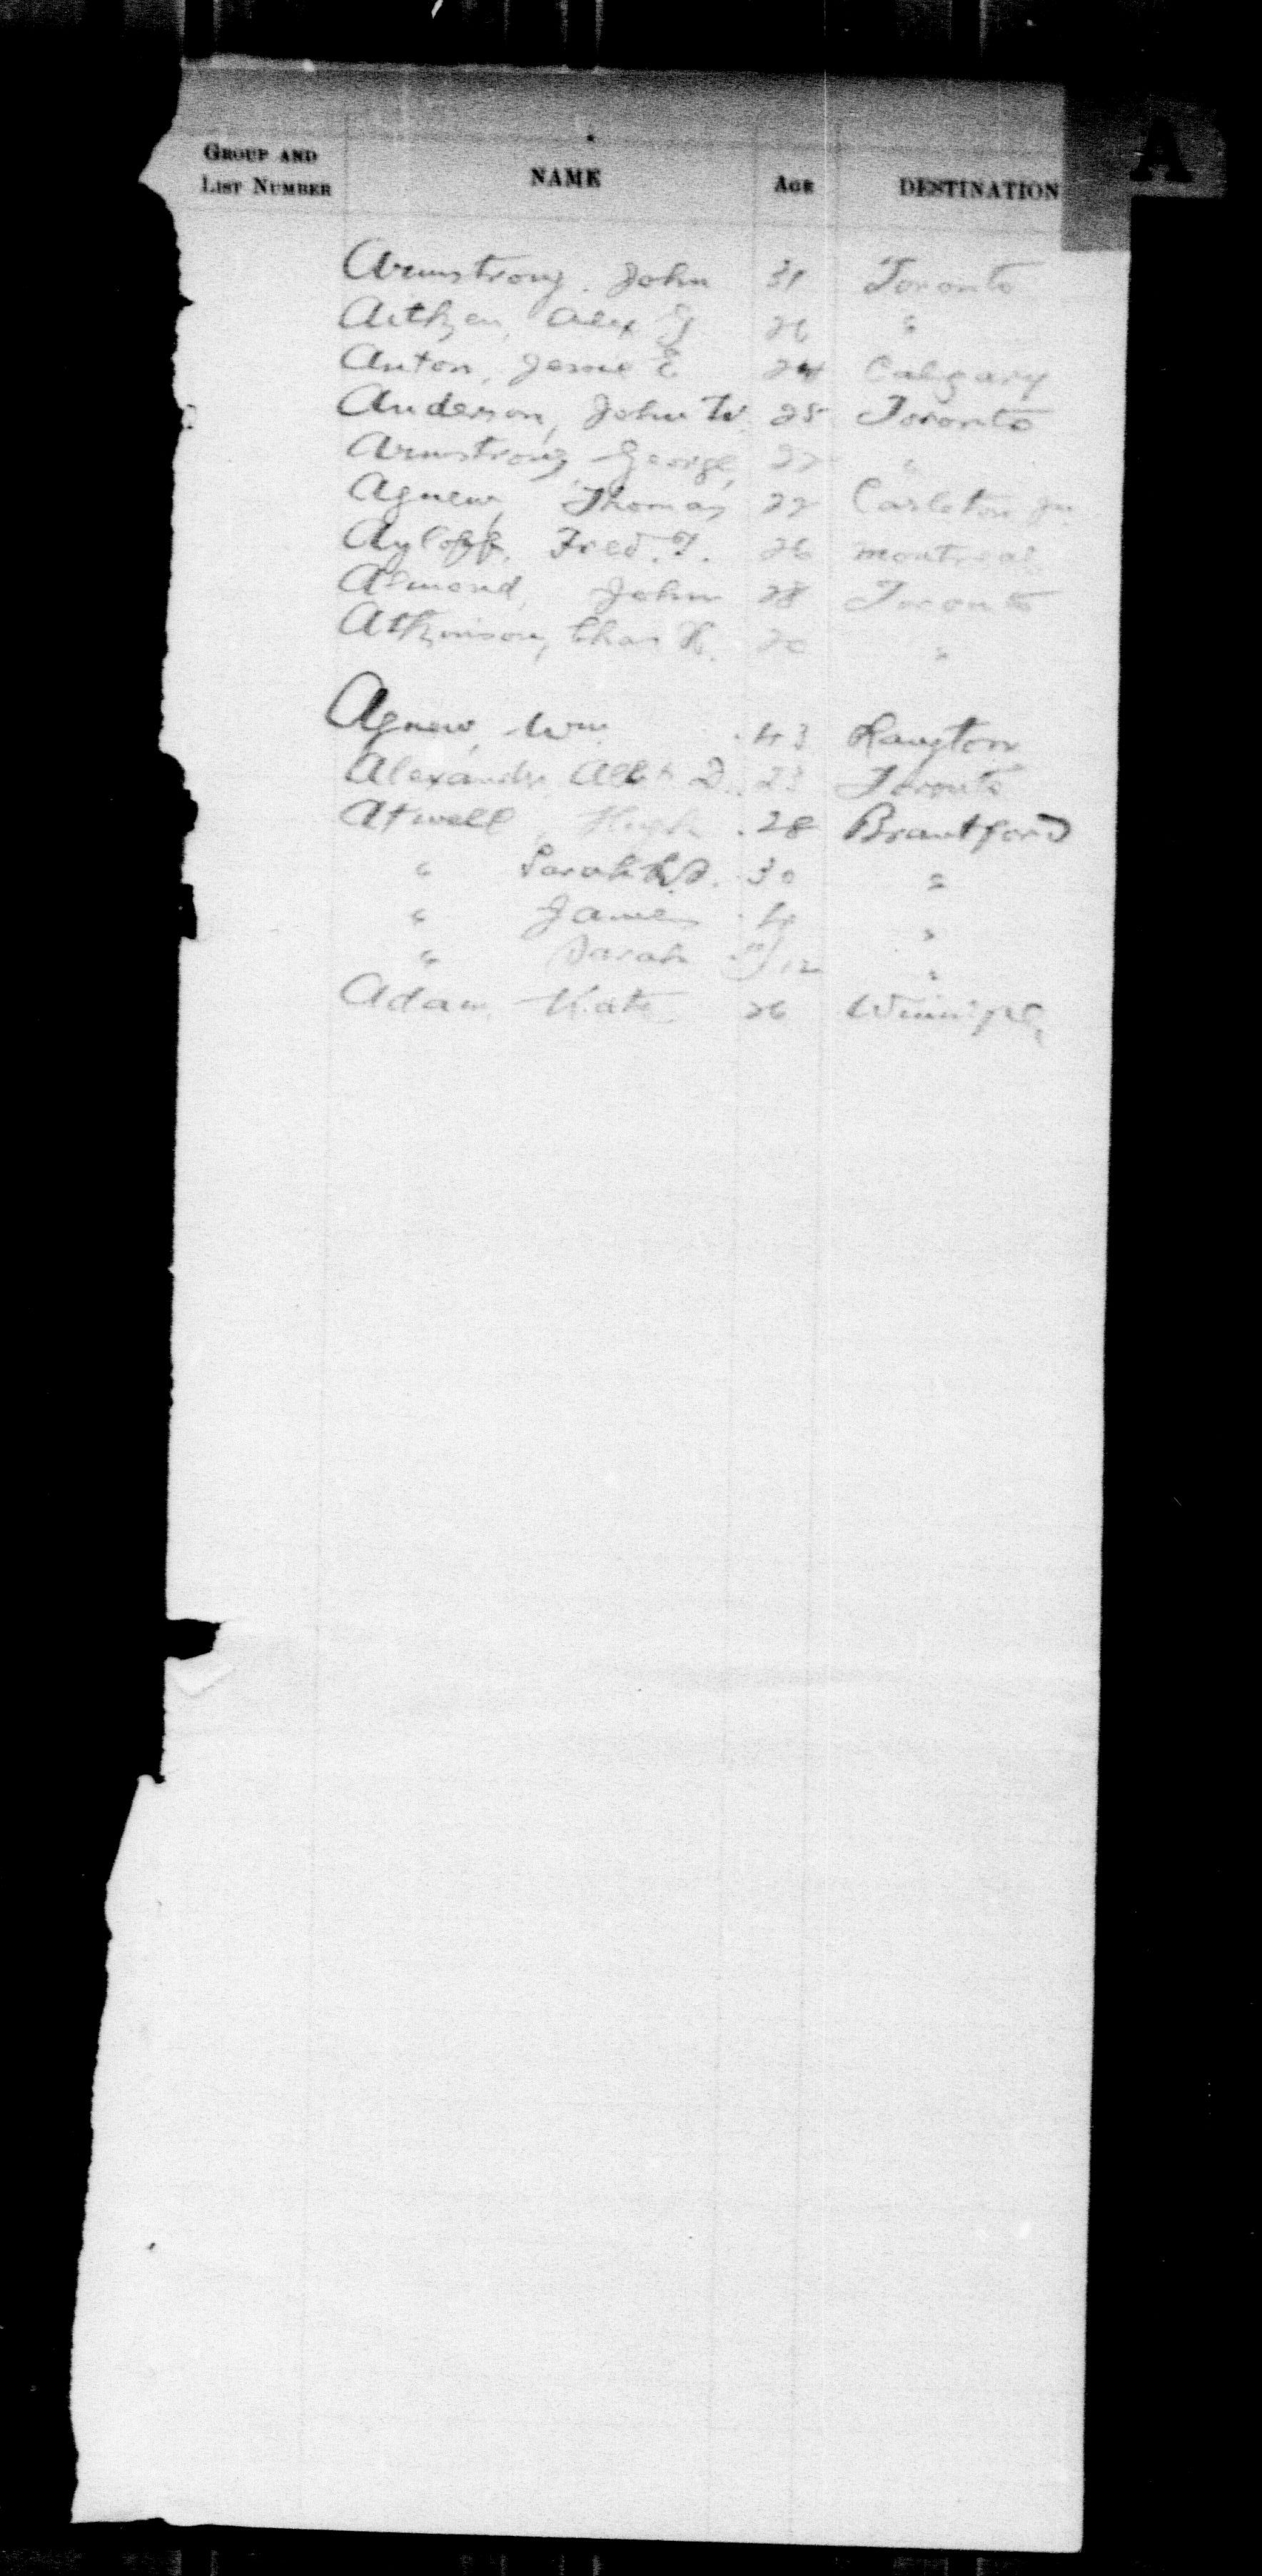 A
GROUP AND LIST NUMBER NAME AGE DESTINATION
Armstrong, John 31 Toronto
Aitken, Alex G 26 "
Anton, Jessie E 24 Calgary
Anderson, John W. 25 Toronto
Armstrong, George, 22 "
Agnew, Thomas 22 Carleton Jn.
Ayloff, Fred. T. 26 Montreal
Almond, John 28 Toronto
Atkinson, Chas H. 20 "
Agnew, Wm 43 Langton
Alexander, Albt D. 23 Toronto
Atwell, Hugh 28 Brantford
" Sarah 30 "
" James 4 "
" Sarah /12 "
Adam, Kate 26 Winnipeg